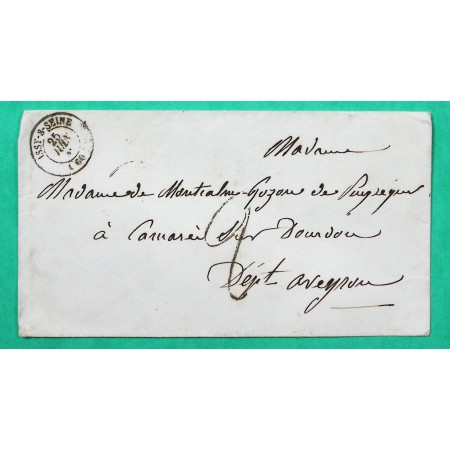 ISSY-S-SEINE
25
(60)
Madame
Madame de Montcalm Gozon de Puységur
à Camarès sur Dourdou
2
Dépt aveyron